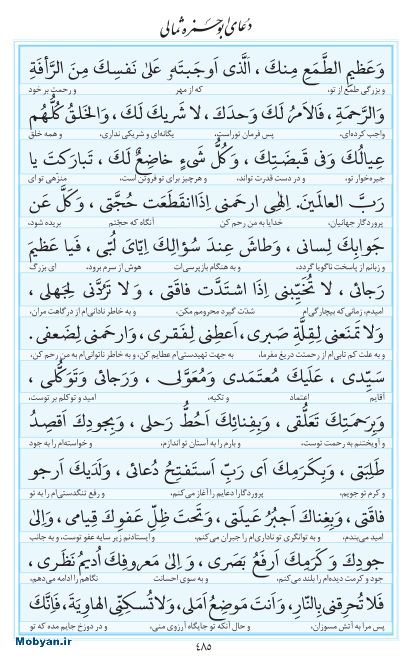 دعای ابوحمزه ثمالی
وَعَظیمِ الطَّمَعِ مِنكَ ، الَّذی اَوجَبتَه عَلی نَفسِكَ مِنَ الرَّأفَةِ
و بزرگی طمع از تو، که از مهر و رحمت بر خود
وَالرَّحمَةِ، فَالاَمرُ لَكَ وَحدَكَ، لا شَریكَ لَكَ، وَالخَلقُ كُلُّهُم
واجب کرده‌ای، پس فرمان توراست، یگانه‌ای و شریکی نداری، و همه خلق
عِیالُكَ وَفی قَبضَتِكَ، وَكُلُّ شَیءٍ خاضِعٌ لَكَ، تَبارَكتَ یا
جیره‌خوار تو، و در دست قدرت تواند، و هر چیز برای تو فروتن است، منزهی تو ای
رَبَّ العالَمینَ. اِلهِی ارحَمنی اِذَا انقَطَعَت حُجَّتی، وَكَلَّ عَن
پروردگار جهانیان، خدایا به من رحم کن آنگاه که حجتم بریده شود،
جَوابِكَ لِسانی، وَطاشَ عِندَ سُؤالِكَ اِیّایَ لُبّی، فَیا عَظیمَ
و زبانم از پاسخت ناگویا گردد، و به هنگام بازپرسی‌ات هوش از سرم برود، ای بزرگ
رَجائی، لا تُخَیِّبنی اِذَا اشتَدَّت فاقَتی، وَلا تَرُدَّنی لِجَهلی،
امیدم، زمانی که بیچارگی‌ام شدّت گیرد محرومم مکن، و به خاطر نادانی‌ام از درگاهت مران،
وَلا تَمنَعنی لِقِلَّةِ صَبری، اَعطِنی لِفَقری، وَارحَمنی لِضَعفی.
و به علت کم تابی‌ام از رحمتت دریغ مفرما، به جهت تهیدستی‌ام عطایم کن، و به خاطر ناتوانی‌ام به من رحم کن،
سَیِّدی، عَلَیكَ مُعتَمَدی وَمُعَوَّلی، وَرَجائی وَتَوَكُّلی،
آقایم اعتماد و تکیه، و امید و توکلم بر توست،
وَبِرَحمَتِكَ تَعَلُّقی، وَبِفِنائِكَ اَحُطُّ رَحلی، وَبِجودِكَ اَقصِدُ
و آویختنم به رحمت توست، و بارم را به آستان تو اندازم، و خواسته‌ام را به جود
طَلِبَتی، وَبِكَرَمِكَ اَی رَبِّ اَستَفتِحُ دُعائی، وَلَدَیكَ اَرجو
و کرم تو جویم، پروردگارا دعایم را آغاز می‌کنم، و رفع تنگدستی‌ام را به تو
فاقَتی، وَبِغِناكَ اَجبُرُ عَیلَتی، وَتَحتَ ظِلِّ عَفوِكَ قِیامی، وَاِلی
امید می‌بندم، و به توانگری تو ناداری‌ام را جبران می‌کنم، و ایستادنم زیر سایه عفو توست، و به جانب
جودِكَ وَكَرَمِكَ اَرفَعُ بَصَری، وَاِلی مَعروفِكَ اُدیمُ نَظَری،
جود و کرمت دیده‌ام را بلند می‌کنم، و به سوی احسانت نگاهم را ادامه می‌دهم،
فَلا تُحرِقنی بِالنّارِ، وَاَنتَ مَوضِعُ اَمَلی، وَلا تُسكِنِّی الهاوِیَةَ، فَاِنَّكَ
پس مرا به آتش مسوزان، و حال آنکه تو جایگاه آرزوی منی، و در دوزخ جایم مده که تو
۴۸۵
Mobyan.ir